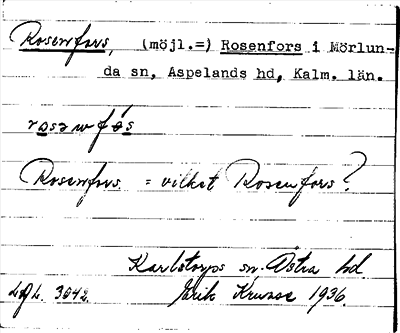 Rosenfors, (möjl.=) Rosenfors i Mörlun-
da sn, Aspelands hd, Kalm. län.
Rosenfors = vilket Rosenfors?
Karlstorps sn. Östra hd
3042. Erik 1936.